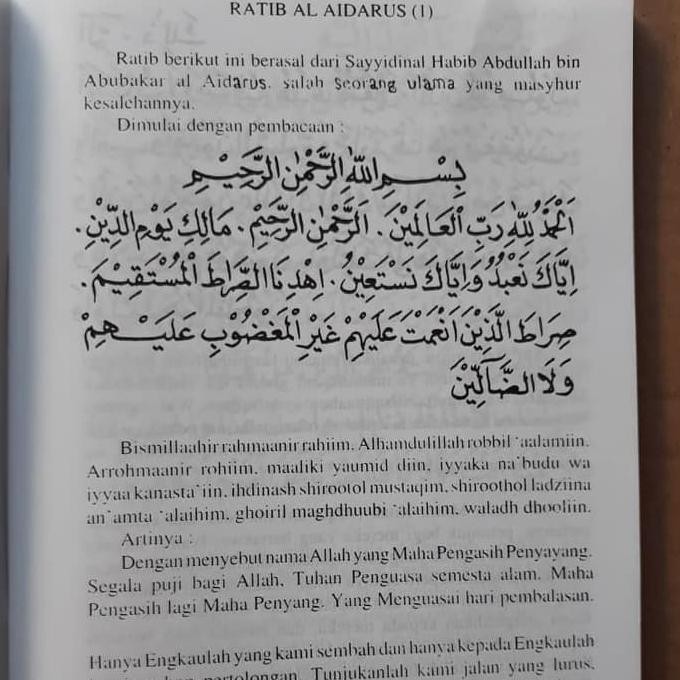 RATIB AL AIDARUS (1)
Ratib berikut ini berasal dari Sayyidinal Habib Abdullah bin
Abubakar al Aidarus. salah seorang ulama yang masyhur
kesalehannya.
Dimulai dengan pembacaan :
بِسْمِ اللهِ الرَّحْمٰنِ الرَّحِيْمِ
اَلْحَمْدُ لِلّٰهِ رَبِّ الْعَالَمِيْنَ. اَلرَّحْمٰنِ الرَّحِيْمِ. مَالِكِ يَوْمِ الدِّيْنِ.
اِيَّاكَ نَعْبُدُ وَاِيَّاكَ نَسْتَعِيْنُ. اِهْدِنَا الصِّرَاطَ الْمُسْتَقِيْمَ.
صِرَاطَ الَّذِيْنَ اَنْعَمْتَ عَلَيْهِمْ غَيْرِ الْمَغْضُوْبِ عَلَيْهِمْ
وَلَا الضَّآلِّيْنَ
Bismillaahir rahmaanir rahiim, Alhamdulillah robbil `aalamiin.
Arrohmaanir rohiim, maaliki yaumid diin, iyyaka na`budu wa
iyyaa kanasta`iin, ihdinash shirootol mustaqim, shiroothol ladziina
an`amta `alaihim, ghoiril maghdhuubi `alaihim, waladh dhooliin.
Artinya :
Dengan menyebut nama Allah yang Maha Pengasih Penyayang.
Segala puji bagi Allah, Tuhan Penguasa semesta alam. Maha
Pengasih lagi Maha Penyang. Yang Menguasai hari pembalasan.
Hanya Engkaulah yang kami sembah dan hanya kepada Engkaulah
pertolongan. Tunjukanlah kami jalan yang lurus,